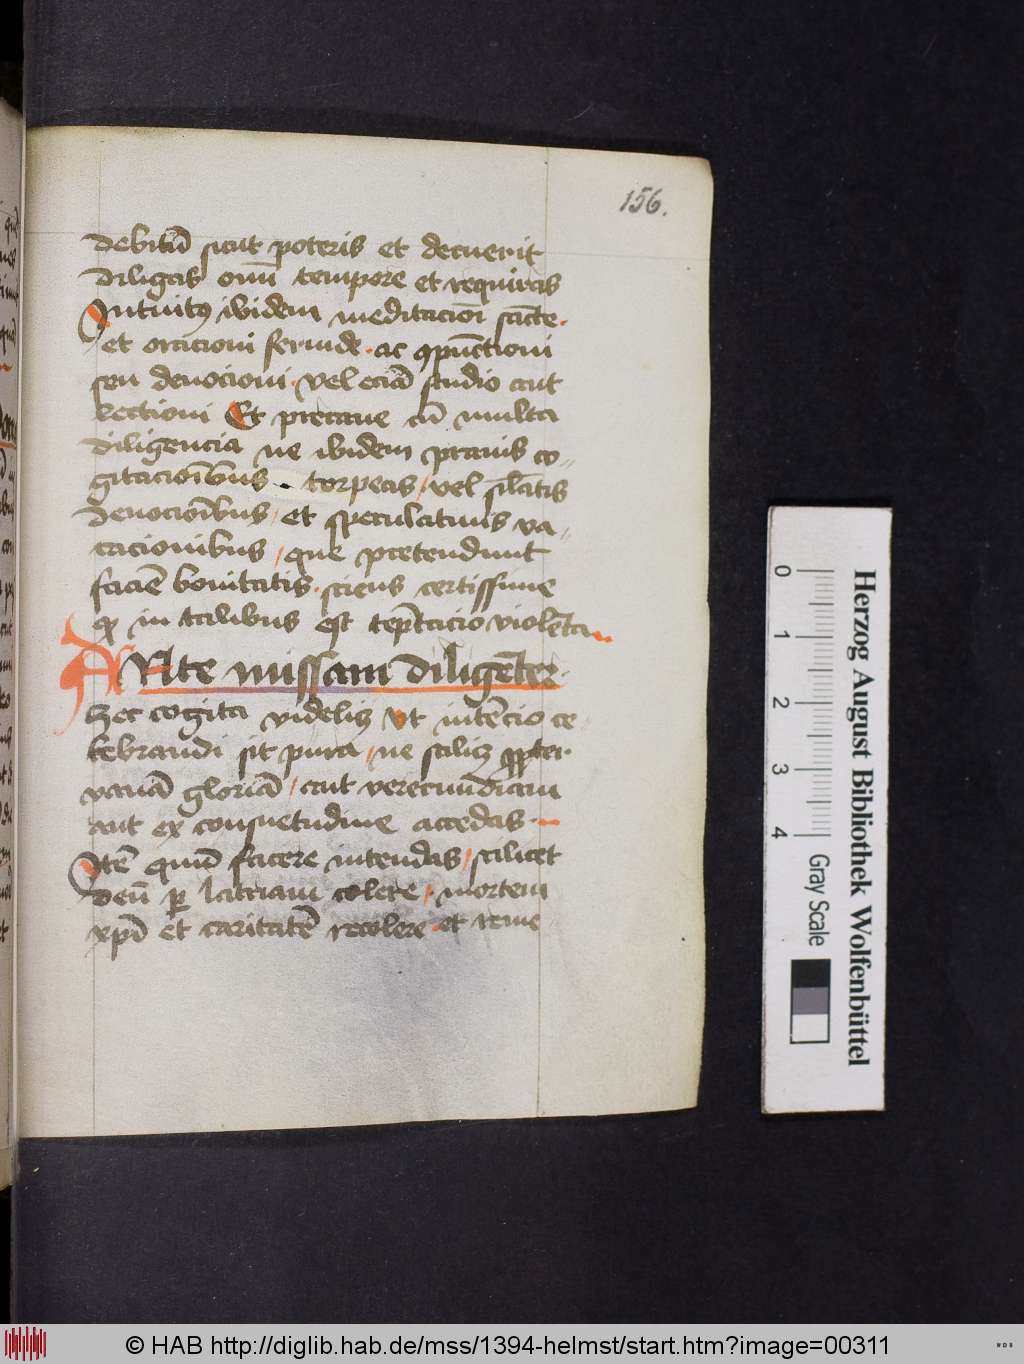 156.
debitū sicut poteris et decuerit
diligas omī tempore et requiras
Intuitꝯ ibidem meditacioī sctē.
et oracioni feruide · ac ꝯpūctioni
seu deuocioni · vel eciā studio aut
lectioni Et precaue cū multa
diligencia ne ibidem prauis co-
gitacioībus torpeas / vel sīlatis
deuocioībus / et speculatiuis va-
cacionibus / que pretendunt
faciē bonitatis · sciens certissime
ꝙ in talibus est tēptacio violēta
ANte missam diligēter
Hec cogita videlicꝫ vt intēcio ce
lebrandi sit pura / ne scilicꝫ ꝓpter
vanā gloriā / aut verecundiam
aut ex consuetudine accedas
Itē quid facere intendas / scilicet
deū ꝑ latriam colere / mortem
xpī et caritatē recolere · et reme
Herzog August Bibliothek Wolfenbüttel
0 1 2 3 4 Gray Scale
© HAB http://diglib.hab.de/mss/1394-helmst/start.htm?image=00311